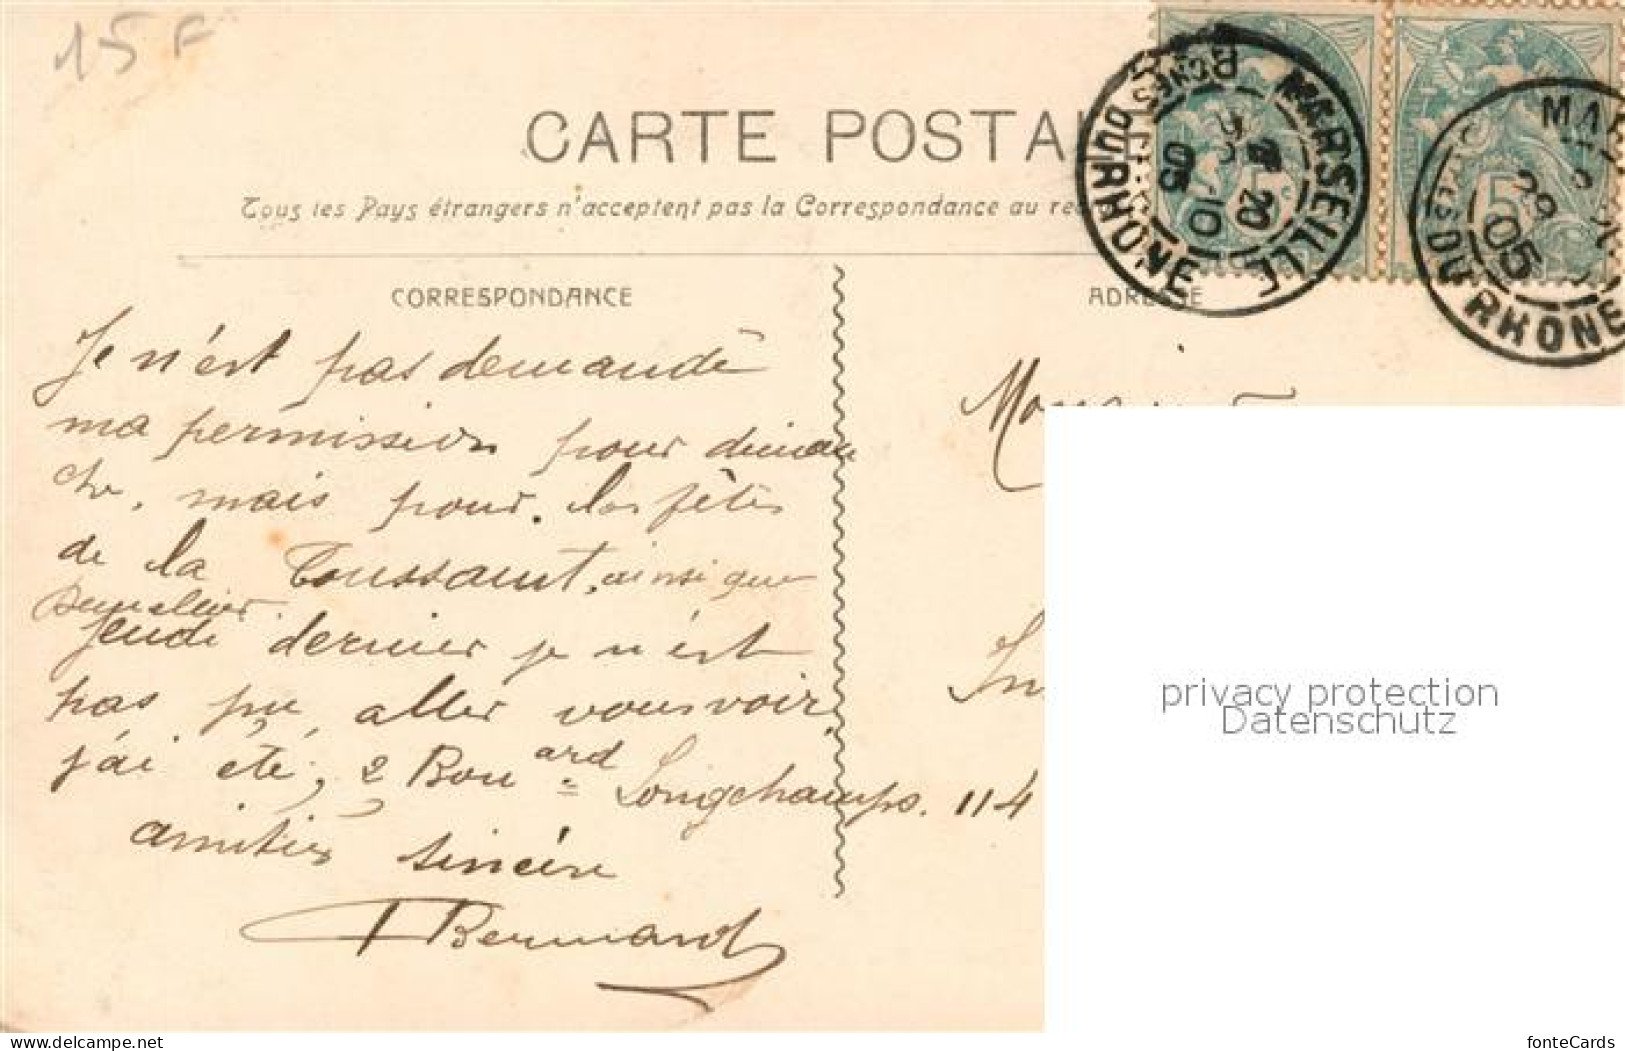 15 F
CARTE POSTA
Tous les Pays étrangers n'acceptent pas la Correspondance au re
CORRESPONDANCE
ADRESSE
MARSEILLE
BCHES DU RHONE
20
10
05
5
MA
29
05
DU RHONE
5
Je n'est pas demandé
ma permission pour diman
che. mais pour les fêtes
de la Toussaint, ainsi que
jeudi dernier je n'est
pas pu aller vous voir,
j'ai été, 2 Bou ard Longchamps. 114
amitiés sincère
Bernard
privacy protection
Datenschutz
www.delcampe.net
fonteCards